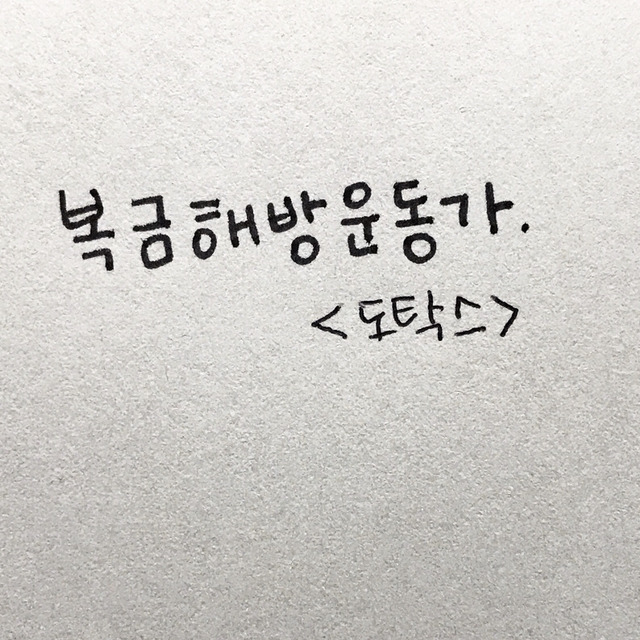 복금해방운동가.
<도탁스>